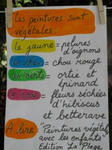 les peintures sont
végétales
le jaune = pelures
d'oignons
= chou rouge
le vert = ortie et
épinard
= fleurs séchées
d'hibiscus
et betterave
A lire : Peintures végétales
avec les enfants
Edition de Plage